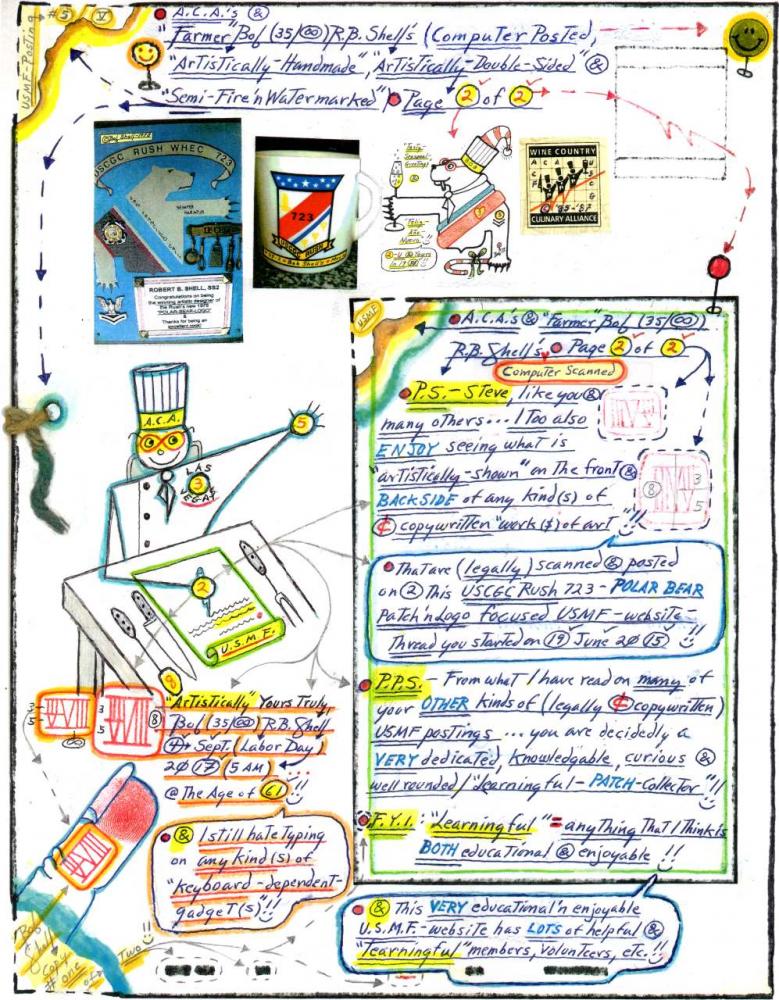 #5 V
USMF-Posting
A.C.A.'s &
"Farmer" Bob (35/∞) R.B. Shell's (Computer Posted,
"Artistically-Handmade", "Artistically-Double-Sided" &
"Semi-Fire'n Watermarked") Page 2 of 2
USCGC RUSH WHEC 723
SEMPER PARATUS
ROBERT B. SHELL, SS2
Congratulations on being
the winning artistic designer of
the Rush's new 1978
"POLAR-BEAR-LOGO"
&
Thanks for being an
excellent cook!
723
USCGC RUSH
Seasonal
Greetings
&
Feliz
Año
Nuevo
WINE COUNTRY
A C A
U S C G
'85-'87
CULINARY ALLIANCE
USMF
A.C.A.'s & "Farmer" Bob (35/∞)
R.B. Shell's Page 2 of 2
Computer Scanned
P.S.- Steve, like you &
many others... I Too also
ENJOY seeing what is
"artistically-shown" on The front &
BACKSIDE of any kind(s) of
© copywritten "work($) of art" !!
8 3 5
That are (legally) scanned & posted
on @ This USCGC Rush 723 - POLAR BEAR
Patch'n Logo focused USMF-website-
Thread you started on 19 June 2015 !!
P.P.S. - From what I have read on many of
your OTHER kinds of (legally © copywritten)
USMF postings ... you are decidedly a
VERY dedicated, Knowledgable, curious &
well rounded/"Learningful-PATCH-Collector" !!
F.Y.I.: "Learningful" = anything That I Think is
BOTH educational & enjoyable !!
& This VERY educational'n enjoyable
U.S.M.F.-website has LOTS of helpful &
"Learningful" members, volunteers, etc. !!
A.C.A.
5
LAS
3
VEGAS
2
U.S.M.F.
8
3 5 ∞
3 5 8
"Artistically" Yours Truly,
Bob (35/∞) R.B. Shell
4 Sept. (Labor Day)
2017 (5 AM)
@ The Age of 61 !!
& I still hate Typing
on any Kind(s) of
"Keyboard-dependent-
gadget(s)" !!
Bob
Shell
Copy
# one
of
Two !!